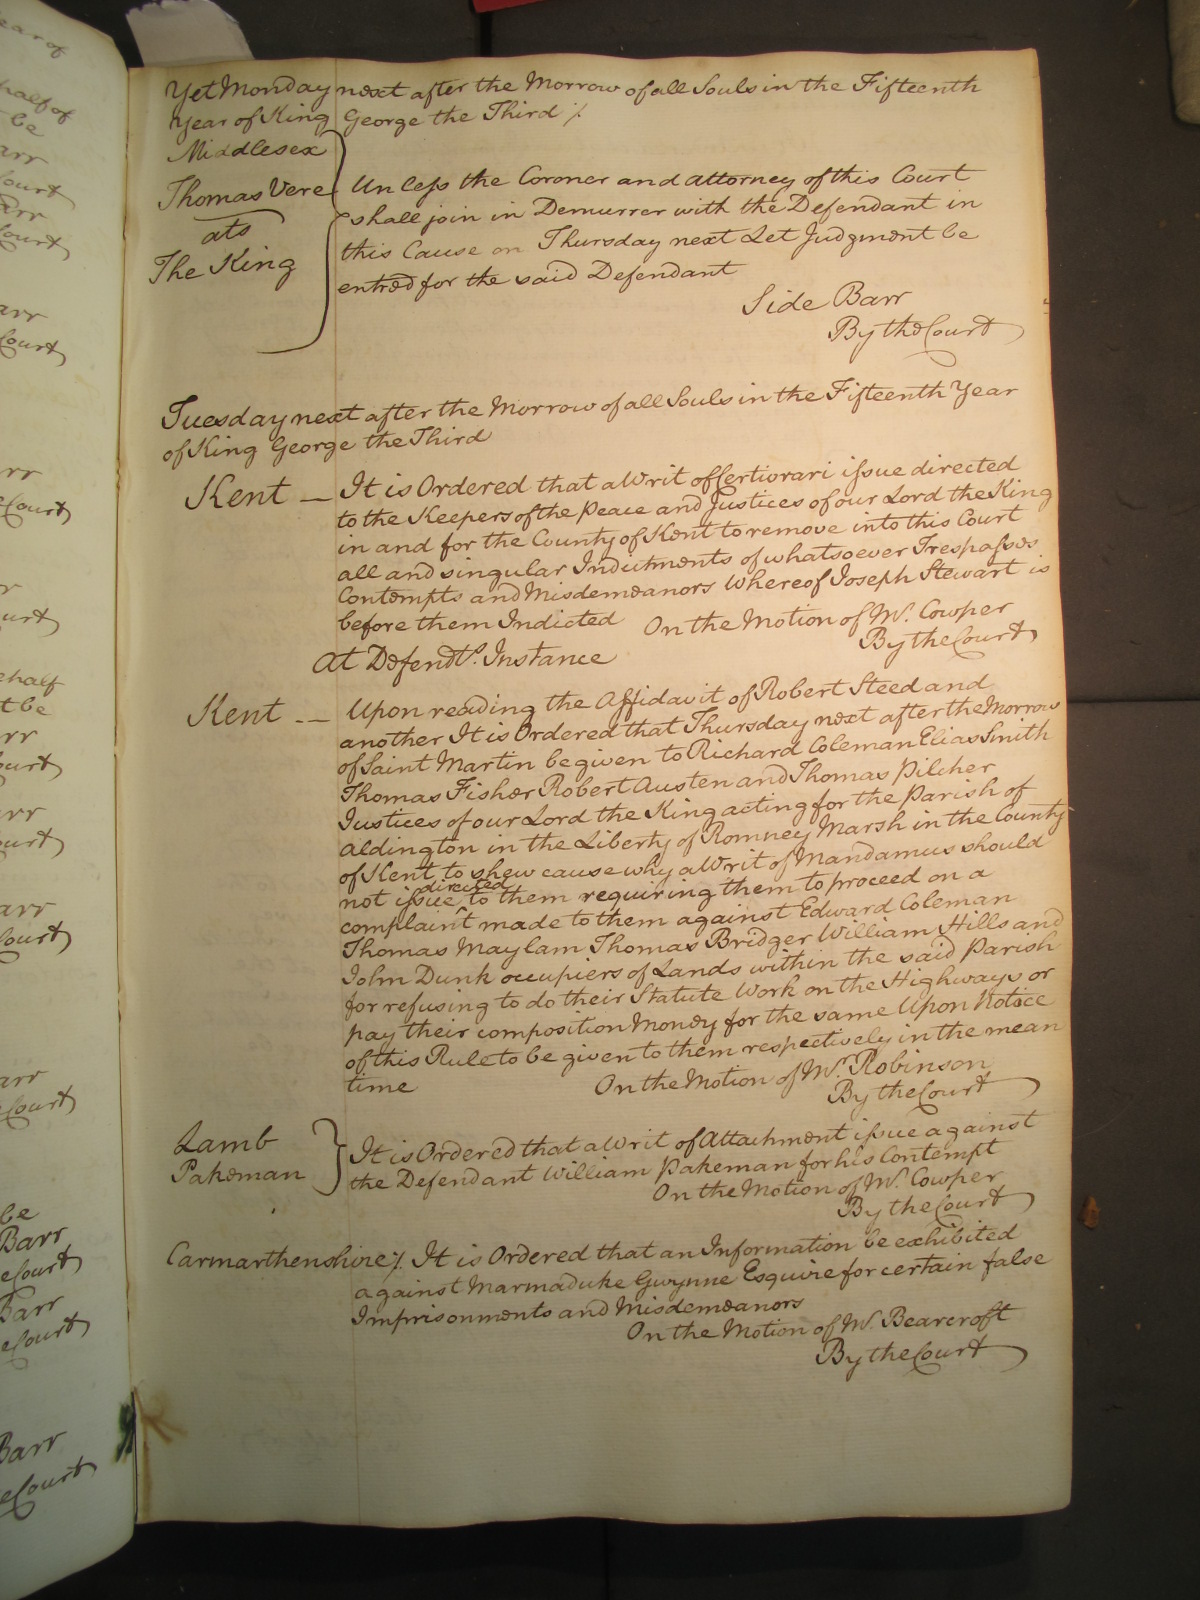 Yet Monday next after the Morrow of all Souls in the Fifteenth
Year of King George the Third %
Middlesex
Thomas Vere
ats
The King
Unless the Coroner and Attorney of this Court
shall join in Demurrer with the Defendant in
this Cause on Thursday next Let Judgment be
entred for the said Defendant
Side Barr
By the Court
Tuesday next after the Morrow of all Souls in the Fifteenth Year
of King George the Third
Kent — It is Ordered that a Writ of Certiorari issue directed
to the Keepers of the Peace and Justices of our Lord the King
in and for the County of Kent to remove into this Court
all and singular Indictments of whatsoever Trespasses
Contempts and Misdemeanors whereof Joseph Stewart is
before them Indicted On the Motion of Mr. Cowper
By the Court
At Defendts. Instance
Kent -- Upon reading the Affidavit of Robert Steed and
another It is Ordered that Thursday next after the Morrow
of Saint Martin be given to Richard Coleman Elias Smith
Thomas Fisher Robert Austen and Thomas Pilcher
Justices of our Lord the King acting for the Parish of
Aldington in the Liberty of Romney Marsh in the County
of Kent to shew cause why a Writ of Mandamus should
directed
not issue ^ to them requiring them to proceed on a
complaint made to them against Edward Coleman
Thomas Maylam Thomas Bridger William Hills and
John Dunk occupiers of Lands within the said Parish
for refusing to do their Statute Work on the Highways or
pay their composition Money for the same Upon Notice
of this Rule to be given to them respectively in the mean
time On the Motion of Mr. Robinson
By the Court
Lamb
Pakeman
It is Ordered that a Writ of Attachment issue against
the Defendant William Pakeman for his Contempt
On the Motion of Mr. Cowper
By the Court
Carmarthenshire % It is Ordered that an Information be exhibited
against Marmaduke Gwynne Esquire for certain false
Imprisonments and Misdemeanors
On the Motion of Mr. Bearcroft
By the Court